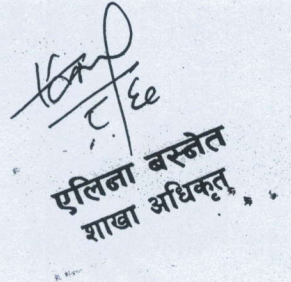 एलिना बस्नेत
शाखा अधिकृत